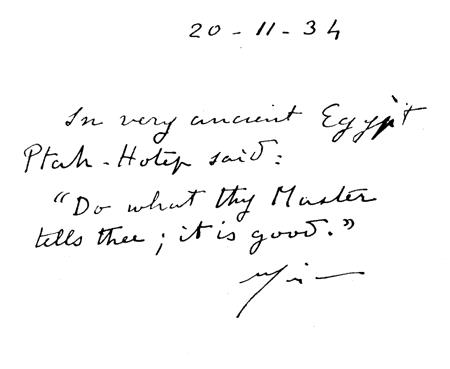 20-11-34
In very ancient Egypt
Ptah-Hotep said:
"Do what thy Master
tells thee; it is good."